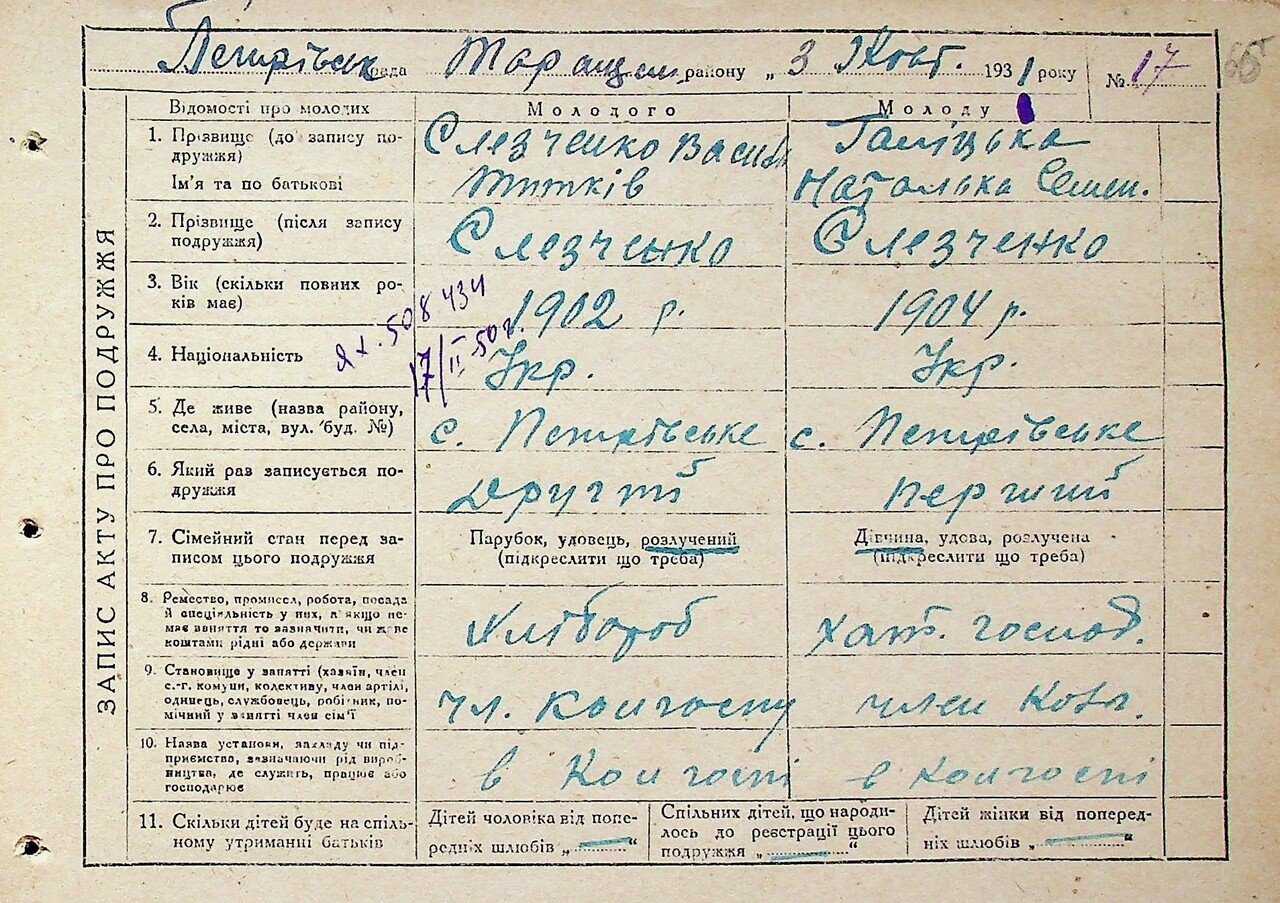 Петрівськ рада Таращан. району „ 3 Жовт. 1931 року № 17
Відомості про молодих Молодого Молоду
1. Прізвище (до запису по- Слезченко Васил Галіцька
дружжя)
Ім'я та по батькові Титків Наталька Семен.
2. Прізвище (після запису Слезченко Слезченко
подружжя)
3. Вік (скільки повних ро- 1902 р. 1904 р.
ків має)
508434
17/II 50 г.
4. Національність Укр. Укр.
5. Де живе (назва району, с. Петрівське с. Петрівське
села, міста, вул. буд. №)
6. Який раз записується по- Другий перший
дружжя
7. Сімейний стан перед за- Парубок, удовець, розлучений Дівчина, удова, розлучена
писом цього подружжя (підкреслити що треба) (підкреслити що треба)
8. Ремество, промисел, робота, посада
й спеціяльність у них, а якщо не- Хлібороб хатн. господ.
має заняття то зазначити, чи живе
коштами рідні або держави
9. Становище у занятті (хазяїн, член
с.-г. комуни, колективу, член артілі, чл. Колгоспу член Колг.
одинець, службовець, робітник, по-
мічний у занятті член сім'ї
10. Назва установи, закладу чи під-
приємство, зазначаючи рід вироб- в Колгоспі в колгоспі
ництва, де служить, працює або
господарює
11. Скільки дітей буде на спіль- Дітей чоловіка від попе- Спільних дітей, що народи- Дітей жінки від поперед-
ному утриманні батьків редніх шлюбів „ — “ лось до реєстрації цього ніх шлюбів „ — “
подружжя „ — “
ЗАПИС АКТУ ПРО ПОДРУЖЖЯ